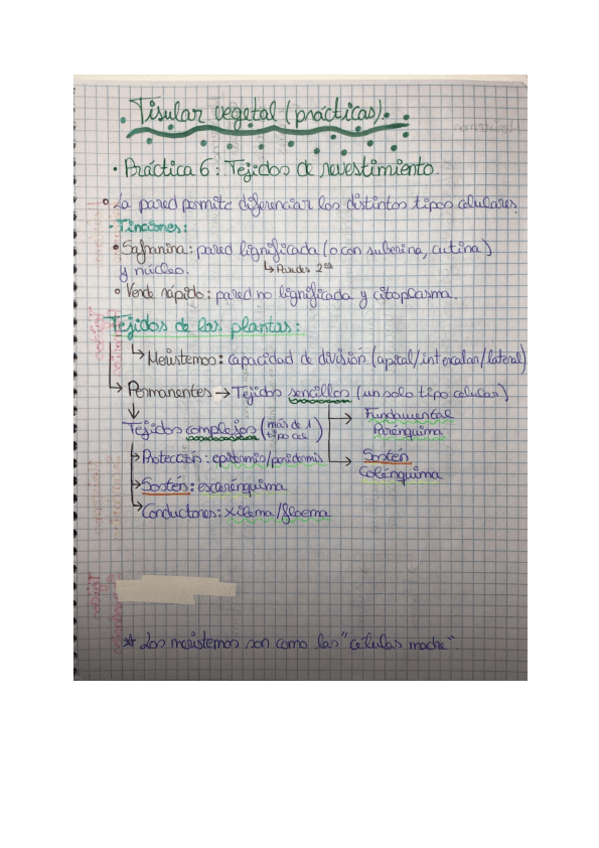 Tisular vegetal (prácticas).
· Práctica 6: Tejidos de revestimiento.
La pared permite diferenciar los distintos tipos celulares.
- Tinciones:
Safranina: pared lignificada (o con suberina, cutina)
y núcleo. ↳ Paredes 2as
Verde rápido: pared no lignificada y citoplasma.
Tejidos de las plantas:
↳ Meristemos: capacidad de división (apical/intercalar/lateral)
↳ Permanentes → Tejidos sencillos (un solo tipo celular)
Tejidos complejos (más de 1 tipo cel)
→ Fundamental
Parénquima
→ Protección: epidermis/peridermis
→ Sostén
Colénquima
→ Sostén: esclerénquima
→ Conductores: xilema/floema
* Los meristemos son como las "células madre".